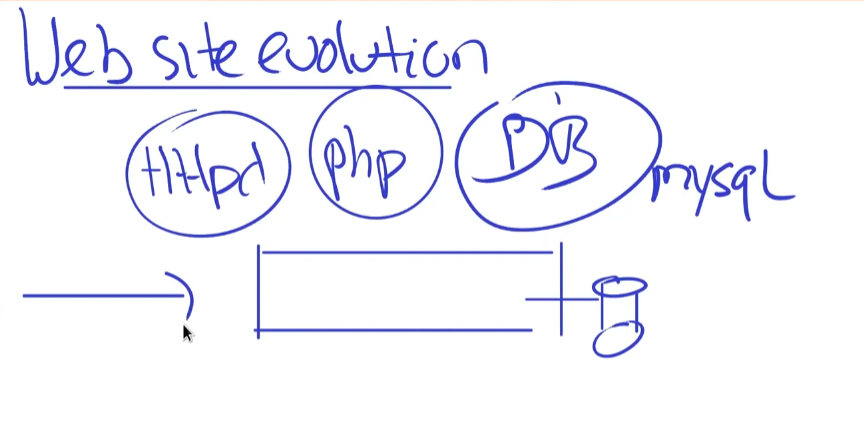 Web site evolution
HTTpd php DB mysql